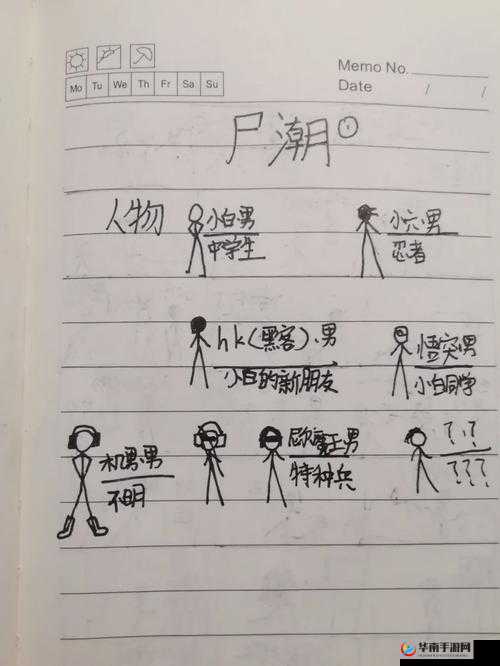 Memo No.
Mo Tu We Th Fr Sa Su
Date / /
尸潮①
人物
小白男
中学生
小六·男
忍者
hk(黑客)·男
小白的新朋友
悟空·男
小白同学
机男·男
不明
魔王·男
特种兵
?·?
???
华南手游网